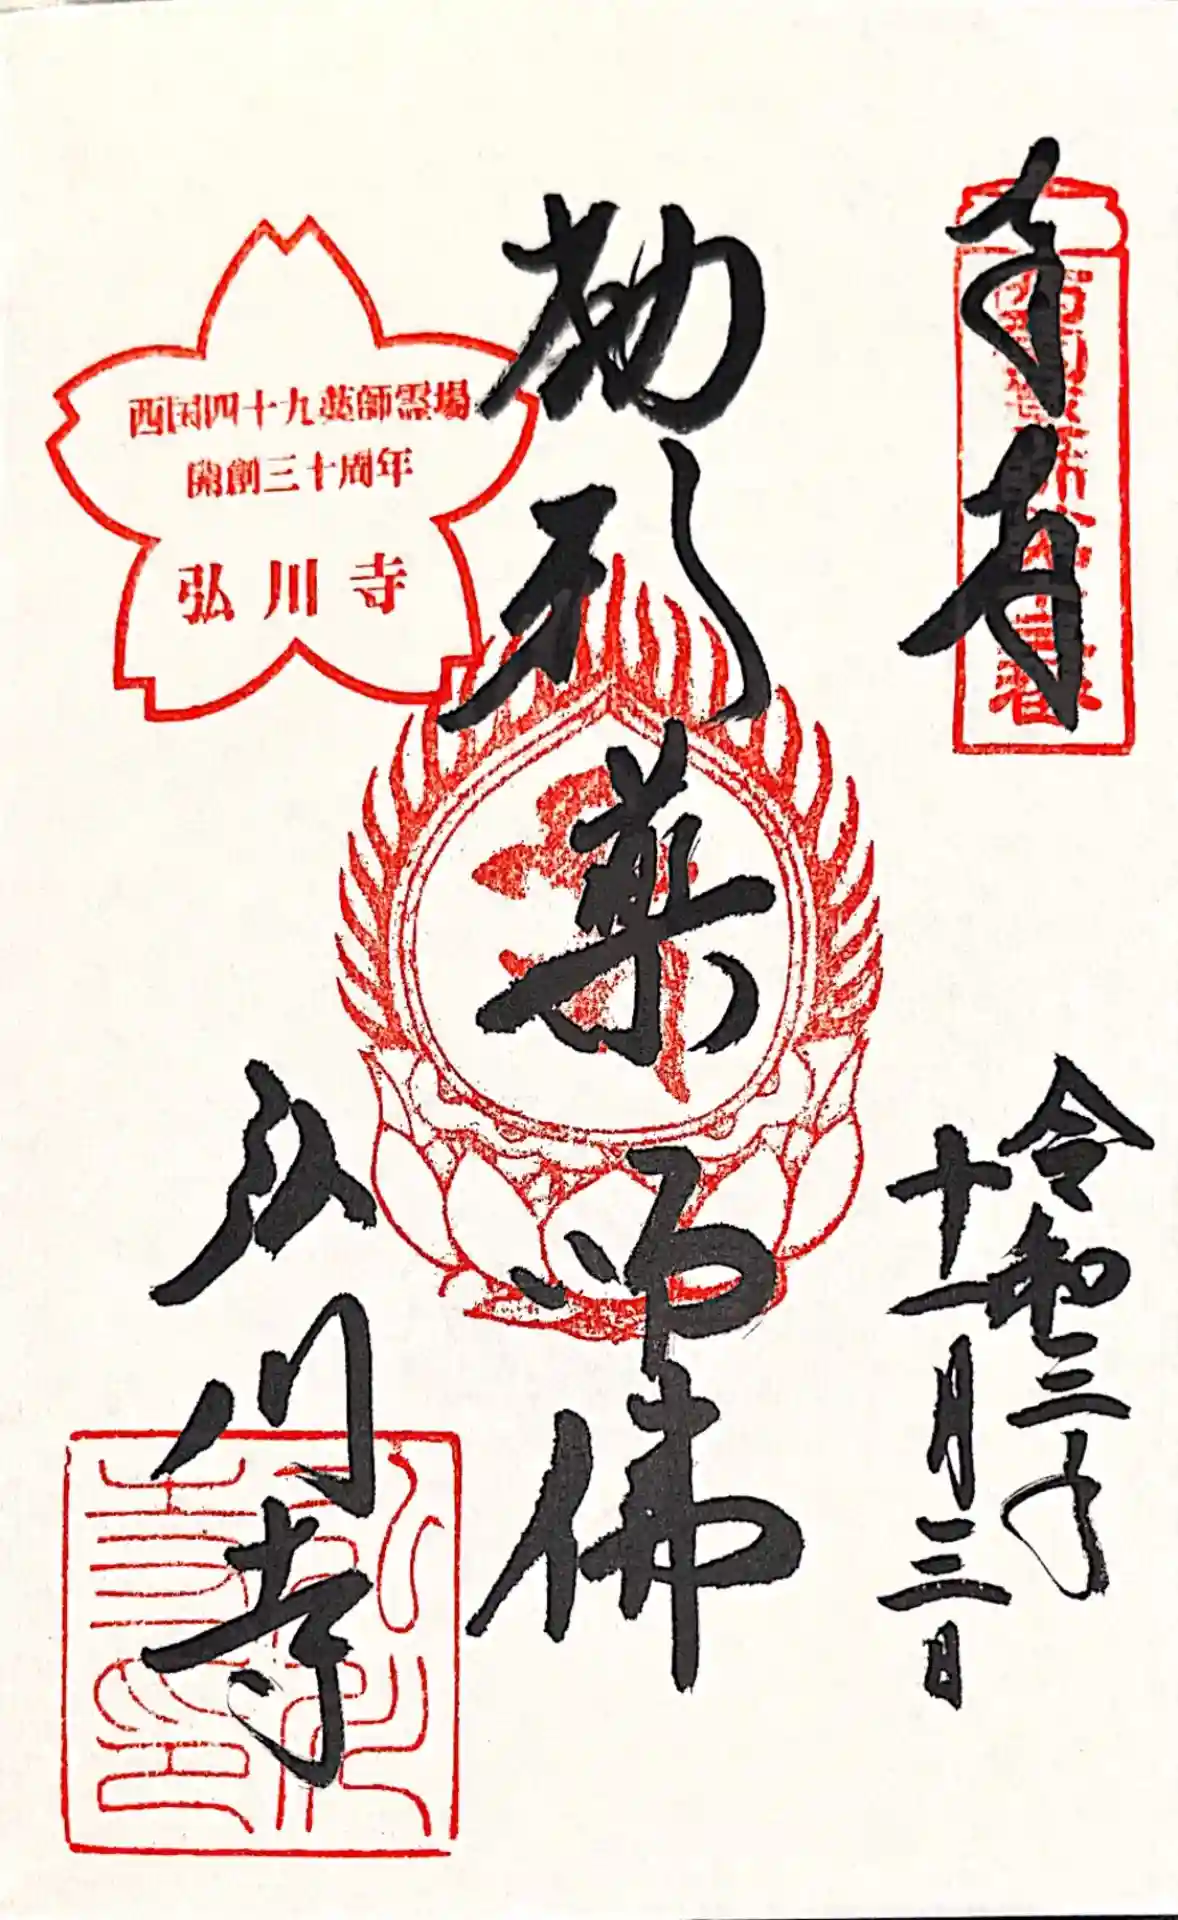 奉拝
西国薬師第十三番
令和三年
十一月三日
薬師佛
西国四十九薬師霊場
開創三十周年
弘川寺
弘川寺